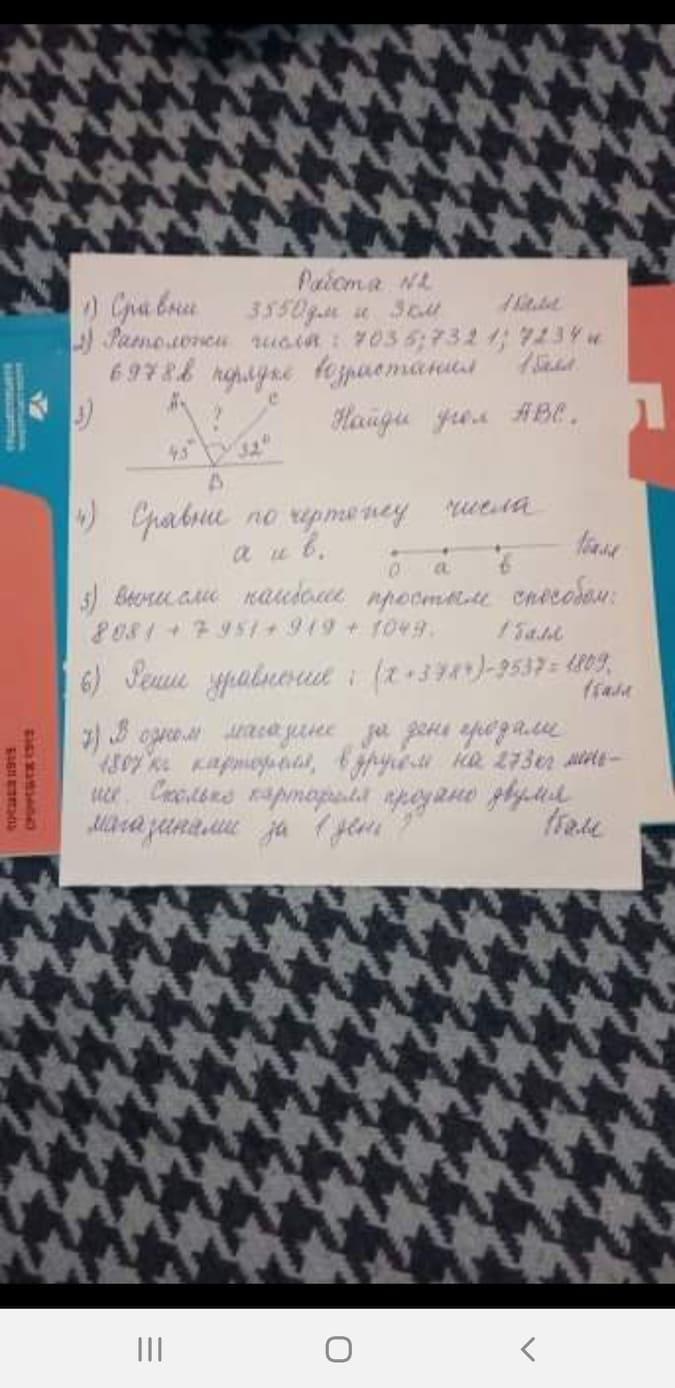 Работа №2
1) Сравни 3550дм и 3км 1балл
2) Расположи числа: 7035; 7321; 7234 и
6978 в порядке возрастания 1балл
3) A ? C Найди угол ABC.
45° 32°
B
4) Сравни по чертежу числа
a и b. 1балл
0 a b
5) Вычисли наиболее простым способом:
8081 + 7951 + 919 + 1049. 1балл
6) Реши уравнение: -9537=1809.
1балл
7) В одном магазине за день продали
1307кг картофеля, в другом на 273кг мень-
ше. Сколько картофеля продано двумя
магазинами за 1 день? 1балл